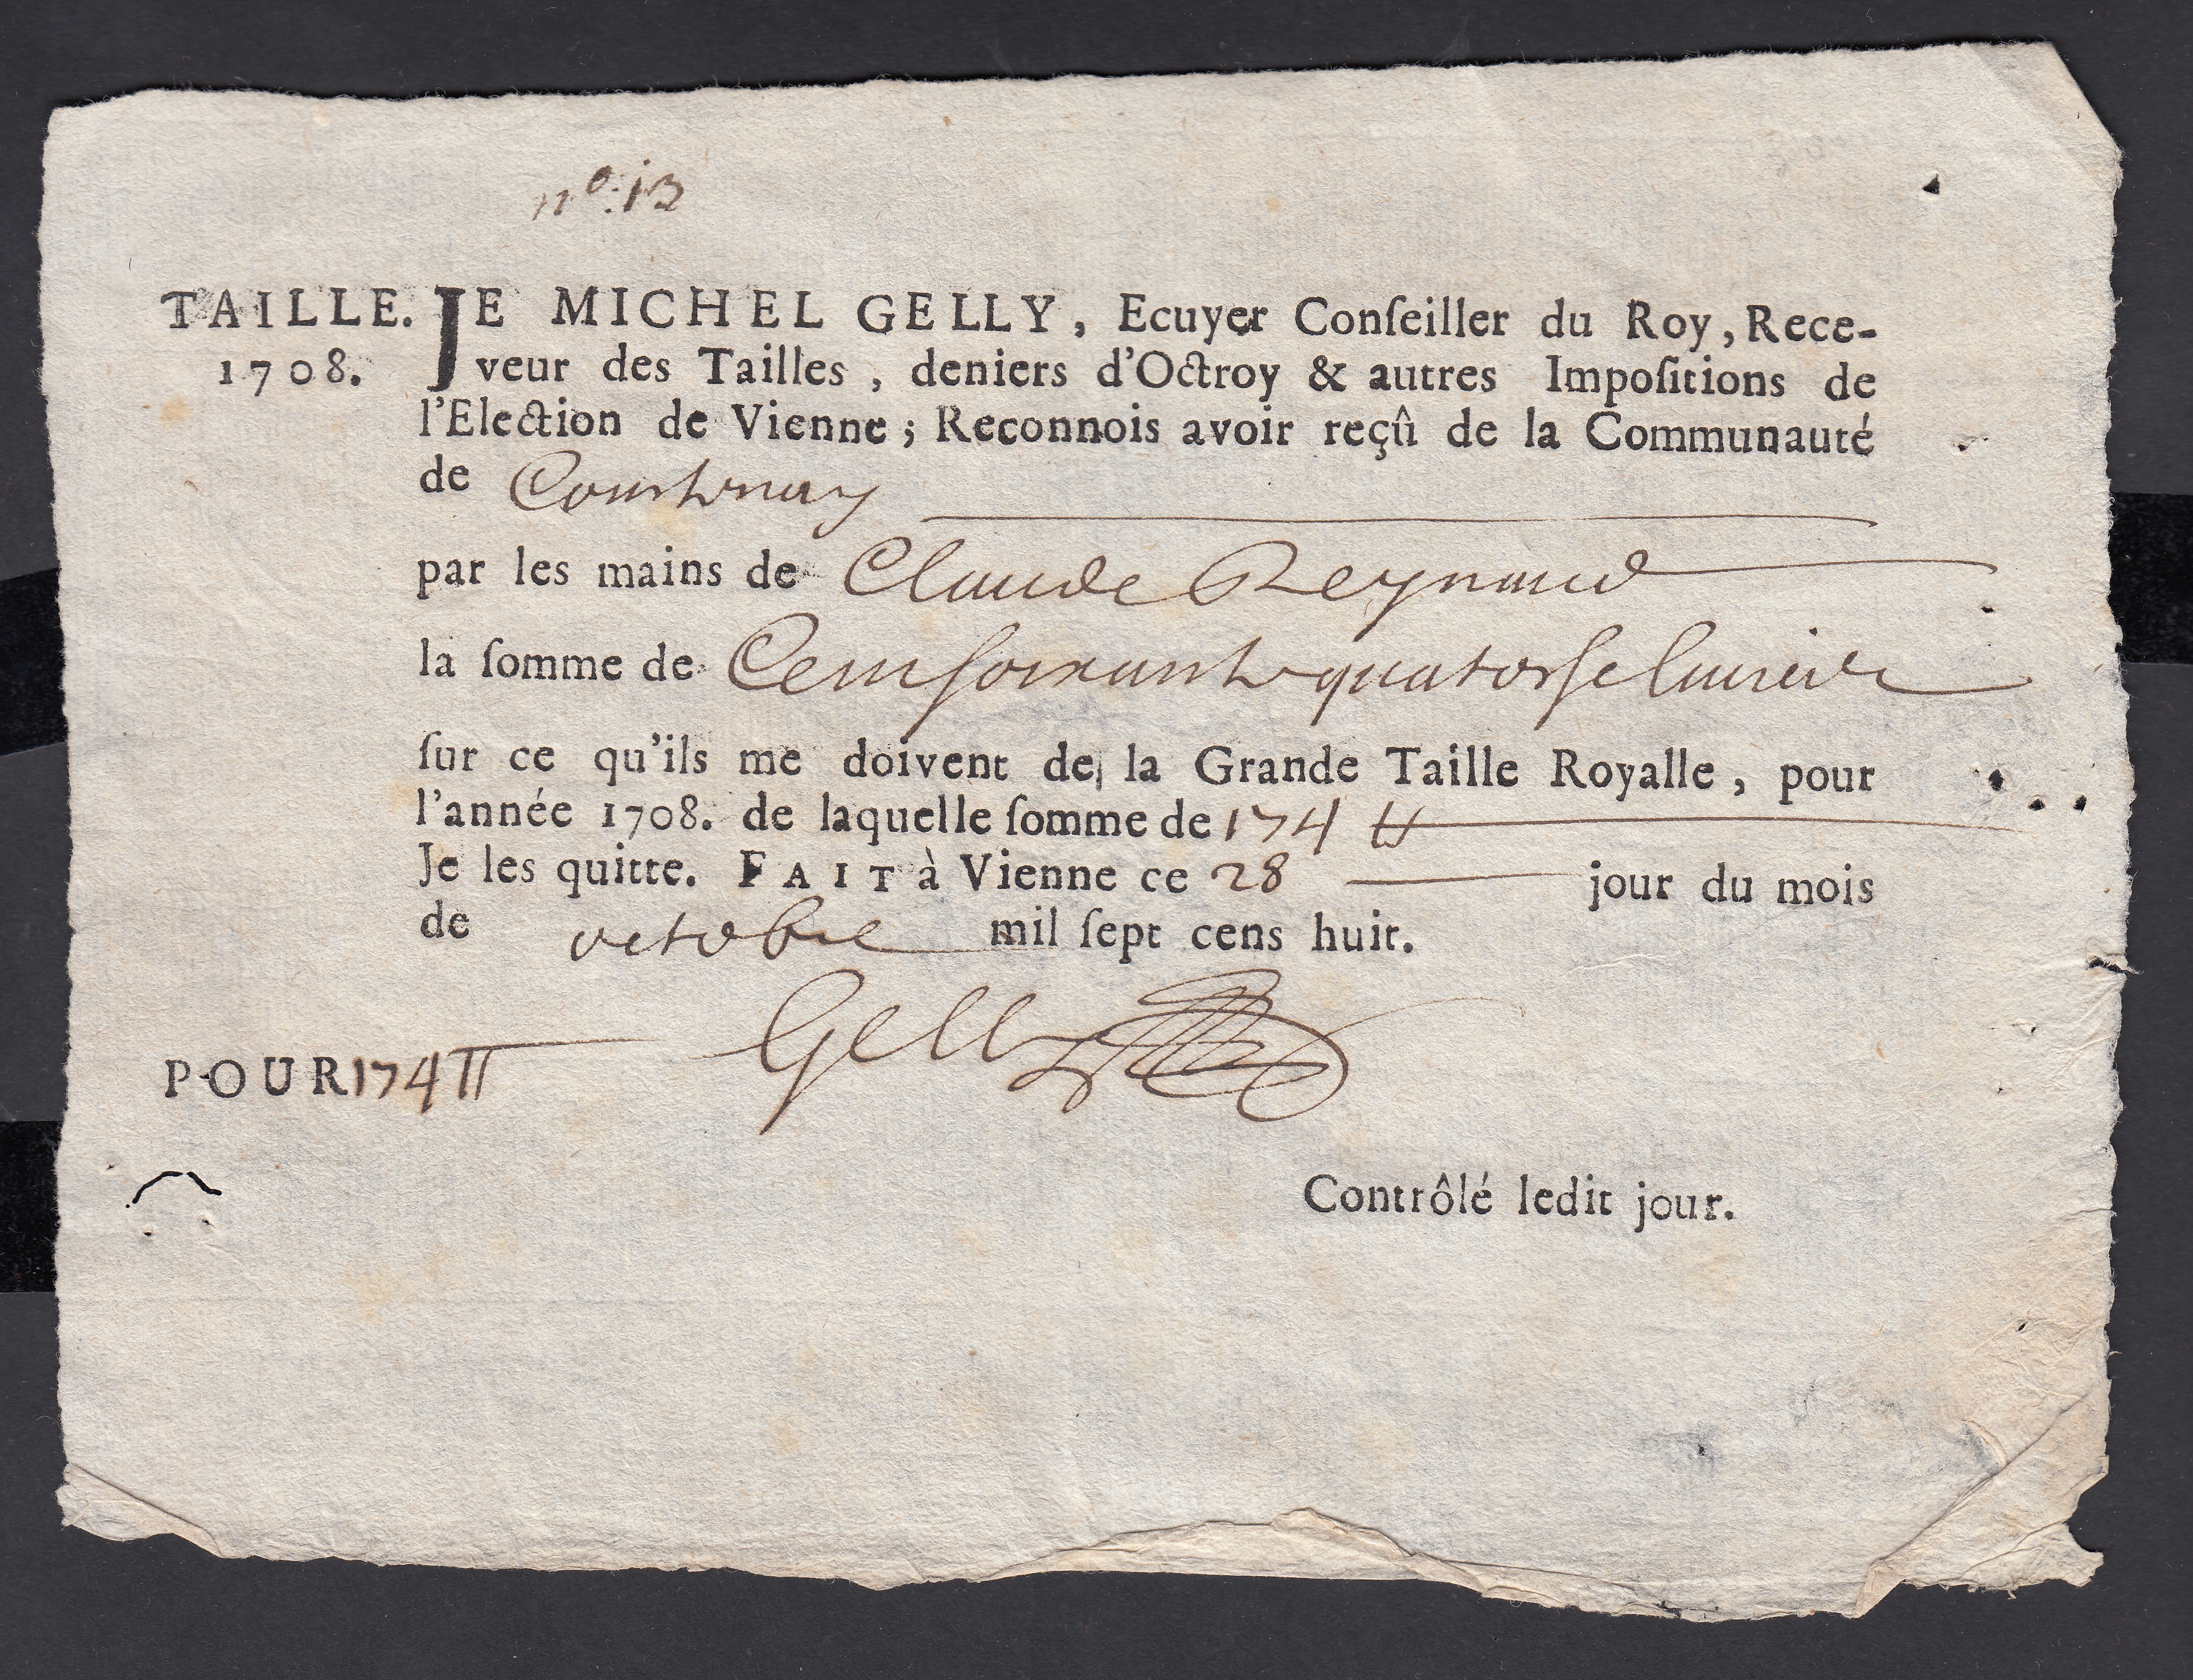 nº. 13
TAILLE. JE MICHEL GELLY, Ecuyer Conſeiller du Roy, Rece-
1708. veur des Tailles, deniers d'Octroy & autres Impoſitions de
l'Election de Vienne; Reconnois avoir reçû de la Communauté
de Courtenay
par les mains de Claude Reynaud
la ſomme de Cent soixante quatorse
ſur ce qu'ils me doivent de la Grande Taille Royalle, pour
l'année 1708. de laquelle ſomme de 174 ₶
Je les quitte. FAIT à Vienne ce 28 jour du mois
de octobre mil ſept cens huit.
Gelly
POUR 174 ₶
Contrôlé ledit jour.